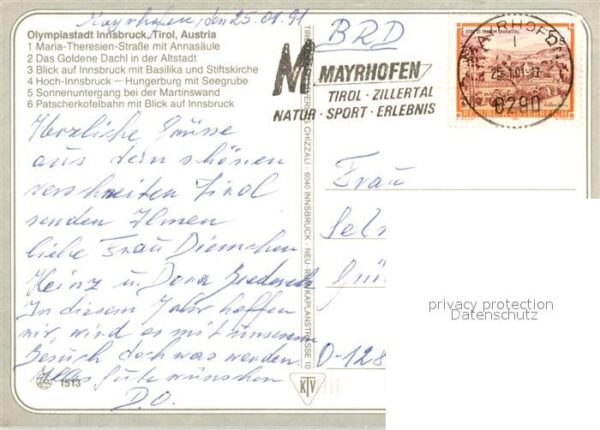 Mayrhofen, den 25.01.91
Olympiastadt Innsbruck, Tirol, Austria
1 Maria-Theresien-Straße mit Annasäule
2 Das Goldene Dachl in der Altstadt
3 Blick auf Innsbruck mit Basilika und Stiftskirche
4 Hoch-Innsbruck – Hungerburg mit Seegrube
5 Sonnenuntergang bei der Martinswand
6 Patscherkofelbahn mit Blick auf Innsbruck
Herzliche Grüsse
aus dem schönen
verschneiten Tirol
senden Ihnen
liebe Frau
Heinz u. Dora
In diesem Jahr hoffen
wir, wird es mit unserem
Besuch doch was werden.
Alles Gute wünschen
D.O.
1513
KTV
CHIZZALI · 6040 INNSBRUCK · NEU-RUM, KAPLANSTRASSE 10
BRD
M MAYRHOFEN
TIROL · ZILLERTAL
NATUR · SPORT · ERLEBNIS
MAYRHOFEN
6290
Frau
D-128
privacy protection
Datenschutz